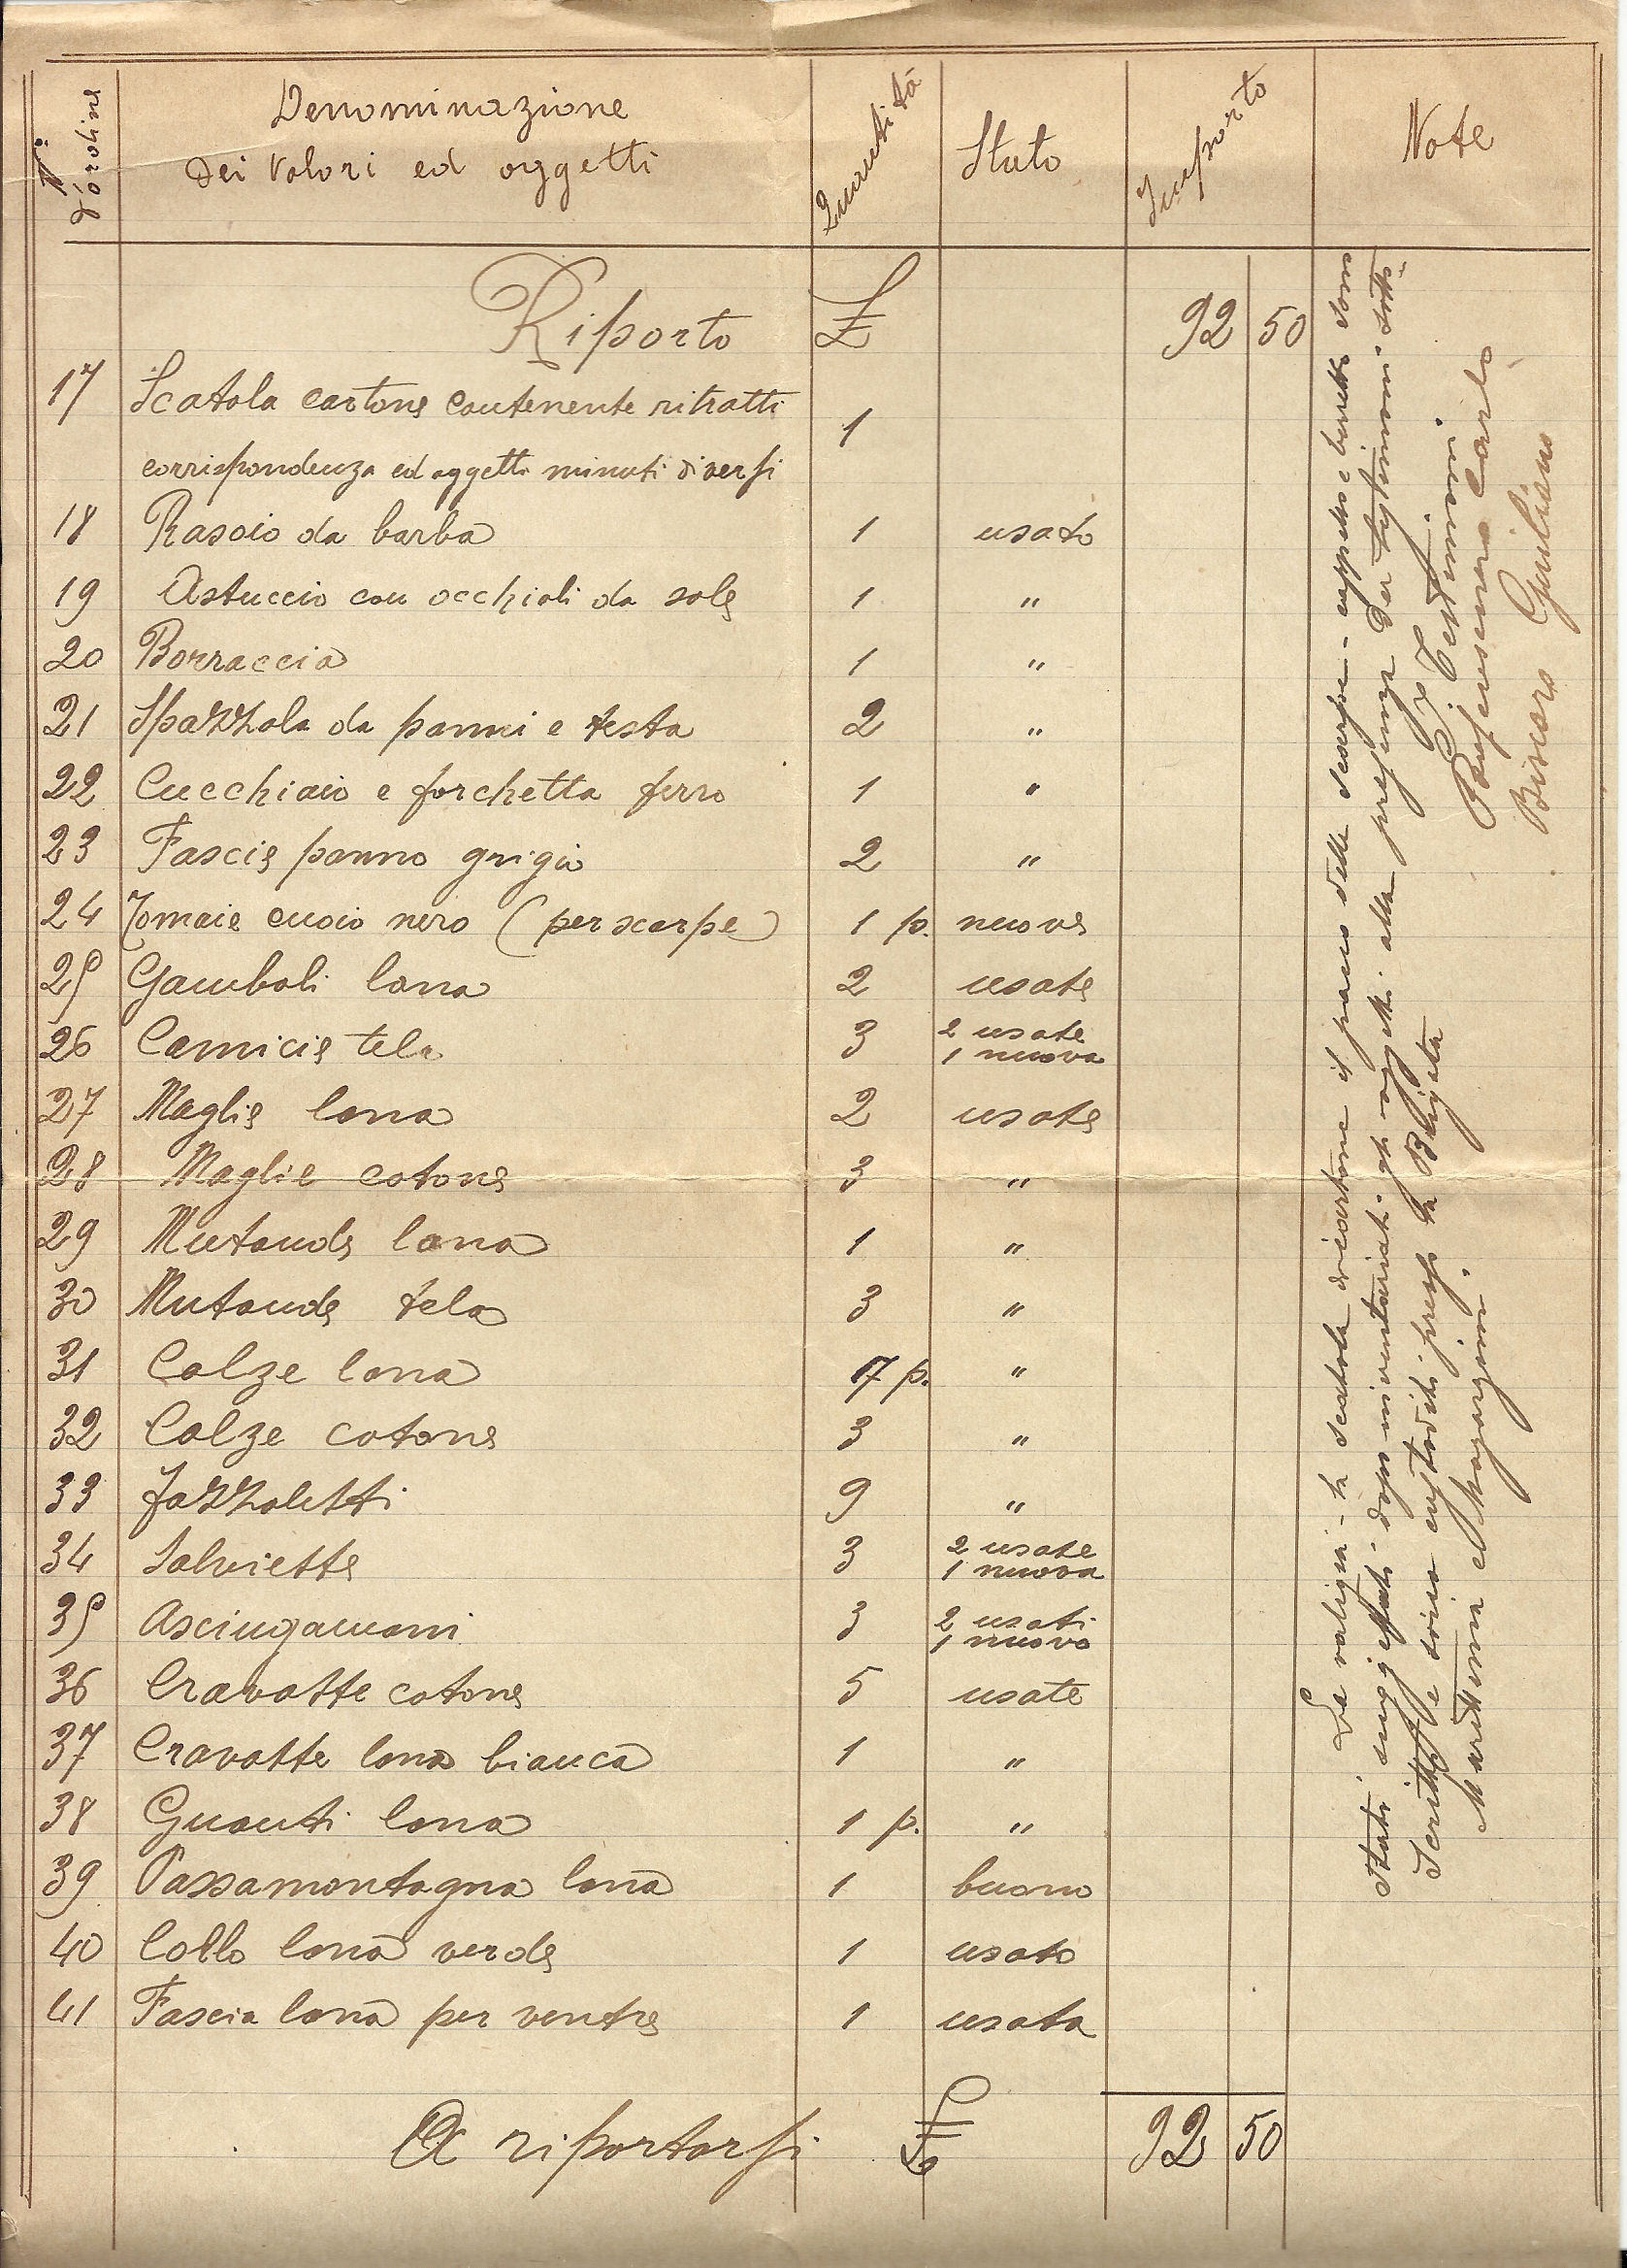 N° d'ordine
Denominazione
dei valori ed oggetti
Quantità
Stato
Importo
Note
Riporto £ 92 50
17 Scatola cartone contenente ritratti
corrispondenza ed oggetti minuti diversi 1
18 Rasoio da barba 1 usato
19 Astuccio con occhiali da sole 1 "
20 Borraccia 1 "
21 Spazzola da panni e testa 2 "
22 Cucchiaio e forchetta ferro 1 "
23 Fascie panno grigio 2 "
24 Tomaie cuoio nero (per scarpe) 1 p. nuove
25 Gambali lana 2 usate
26 Camicie tela 3 2 usate
1 nuova
27 Maglie lana 2 usate
28 Maglie cotone 3 "
29 Mutande lana 1 "
30 Mutande tela 3 "
31 Calze lana 17 p. "
32 Calze cotone 3 "
33 fazzoletti 9 "
34 Salviette 3 2 usate
1 nuova
35 Asciugamani 3 2 usati
1 nuovo
36 Cravatte cotone 5 usate
37 Cravatte lana bianca 1 "
38 Guanti lana 1 p. "
39 Passamontagna lana 1 buono
40 Collo lana verde 1 usato
41 Fascia lana per ventre 1 usata
A riportarsi £ 92 50
La valigia - la scatola di cartone il pacco delle scarpe - cappello e berretto sono
stati suggellati dopo inventariati gli oggetti alla presenza dei testimoni sotto
scritti e sono custoditi presso la Brigata
Marittima e Magazzini.
I Testimoni
Carlo
Biscaro Giuliano